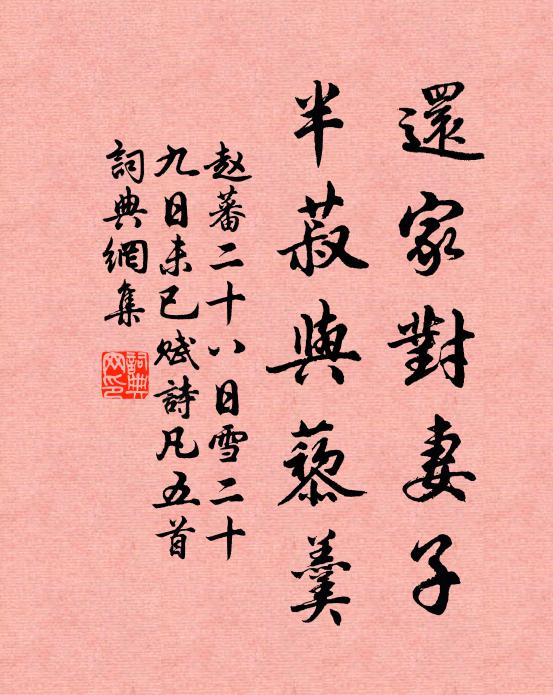 還家對妻子
半菽與藜羹
赵蕃二十八日雪二十
九日未已赋詩凡五首
詞典網集
詞典網印